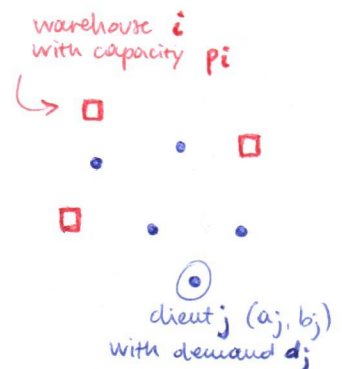 warehouse i
with capacity pi
client j (aj, bj)
with demand dj